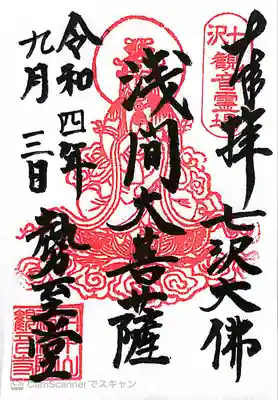 奉拝
七沢大佛
七沢観音霊場
浅間大菩薩
令和四年
九月三日
勢至堂
CamScannerでスキャン